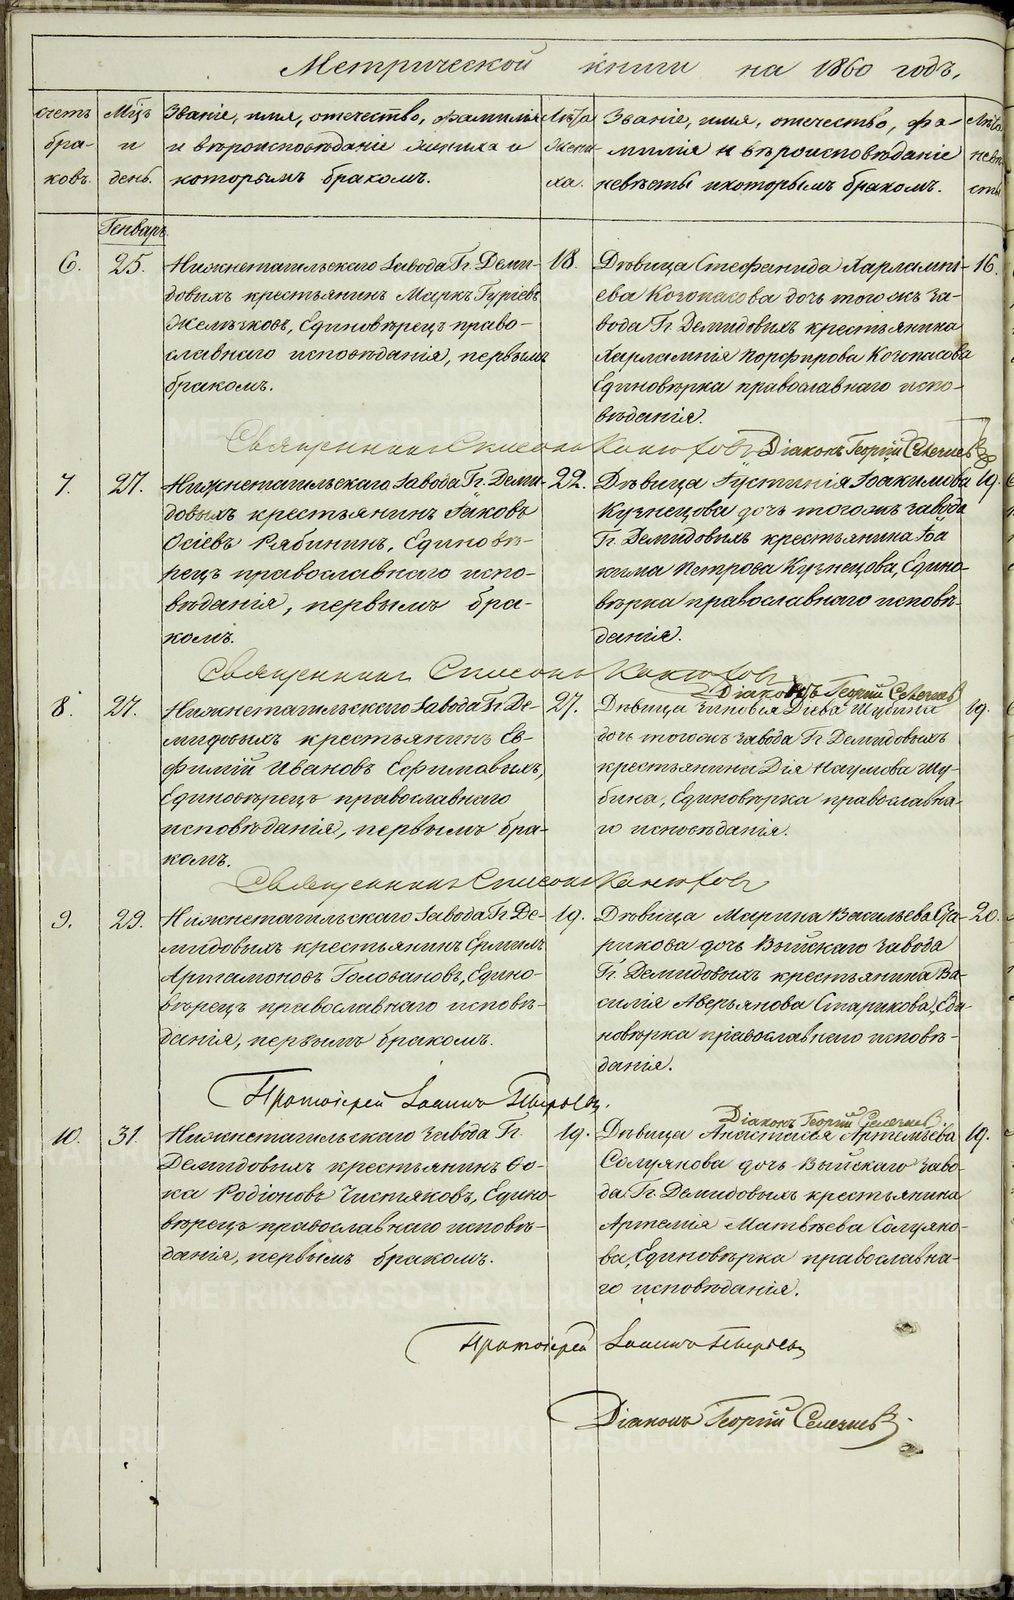 Метрической книги на 1860 годъ,
счетъ браковъ.
Мцъ и день.
Званіе, имя, отечество, фамилія
и вѣроисповѣданіе жениха и
которымъ бракомъ.
Лѣта жениха.
Званіе, имя, отечество, фа-
милія и вѣроисповѣданіе
невѣсты и которымъ бракомъ.
Лѣта невѣсты
Генварь
6. 25.
Нижнетагильскаго завода Гг. Деми-
довыхъ крестьянинъ Маркъ Гуріевъ
Желѣзковъ, Единовѣрецъ право-
славнаго исповѣданія, первымъ
бракомъ.
18.
Дѣвица Стефанида Харлампі-
ева Коголасова дочь тогожъ за-
вода Гг. Демидовыхъ крестьянина
Харлампія Порфирова
Единовѣрка православнаго испо-
вѣданія.
16.
Священникъ Симеонъ Канюковъ
Діаконъ Георгій Селезневъ
7. 27.
Нижнетагильскаго завода Гг. Деми-
довыхъ крестьянинъ Іаковъ
Осіевъ Рябининъ, Единовѣ-
рецъ православнаго испо-
вѣданія, первымъ бра-
комъ.
22.
Дѣвица Іустинія Іоакимова
Кузнецова дочь тогожъ завода
Гг. Демидовыхъ крестьянина Іоа
кима Петрова Кузнецова, Едино-
вѣрка православнаго исповѣ-
данія.
19.
Священникъ Симеонъ Канюковъ
Діаконъ Георгій Селезневъ
8. 27.
Нижнетагильскаго завода Гг. Де-
мидовыхъ крестьянинъ Ев-
фимій Ивановъ Ефимовыхъ,
Единовѣрецъ православнаго
исповѣданія, первымъ бра-
комъ.
27.
Дѣвица Зиновія Діева Шубина
дочь тогожъ завода Гг. Демидовыхъ
крестьянина Дія Наумова Шу-
бина, Единовѣрка православна-
го исповѣданія.
19.
Священникъ Симеонъ Канюковъ
9. 29.
Нижнетагильскаго завода Гг. Де-
мидовыхъ крестьянинъ Ермилъ
Артамоновъ Головановъ, Едино-
вѣрецъ православнаго исповѣ-
данія, первымъ бракомъ.
19.
Дѣвица Марина Васильева Ста-
рикова дочь Выйскаго завода
Гг. Демидовыхъ крестьянина Ва-
силія Аверьянова Старикова, Еди-
новѣрка православнаго исповѣ-
данія.
20.
Протоіерей Іоаннъ Пырьевъ.
Діаконъ Георгій Селезневъ
10. 31.
Нижнетагильскаго завода Гг.
Демидовыхъ крестьянинъ Фо-
ка Родіоновъ Чистяковъ, Едино-
вѣрецъ православнаго исповѣ-
данія, первымъ бракомъ.
19.
Дѣвица Анастасія Артеміева
Солуянова дочь Выйскаго заво-
да Гг. Демидовыхъ крестьянина
Артемія Матвѣева Солуяно-
ва, Единовѣрка православна-
го исповѣданія.
19.
Протоіерей Іоаннъ Пырьевъ
Діаконъ Георгій Селезневъ
METRIKI.GASO-URAL.RU